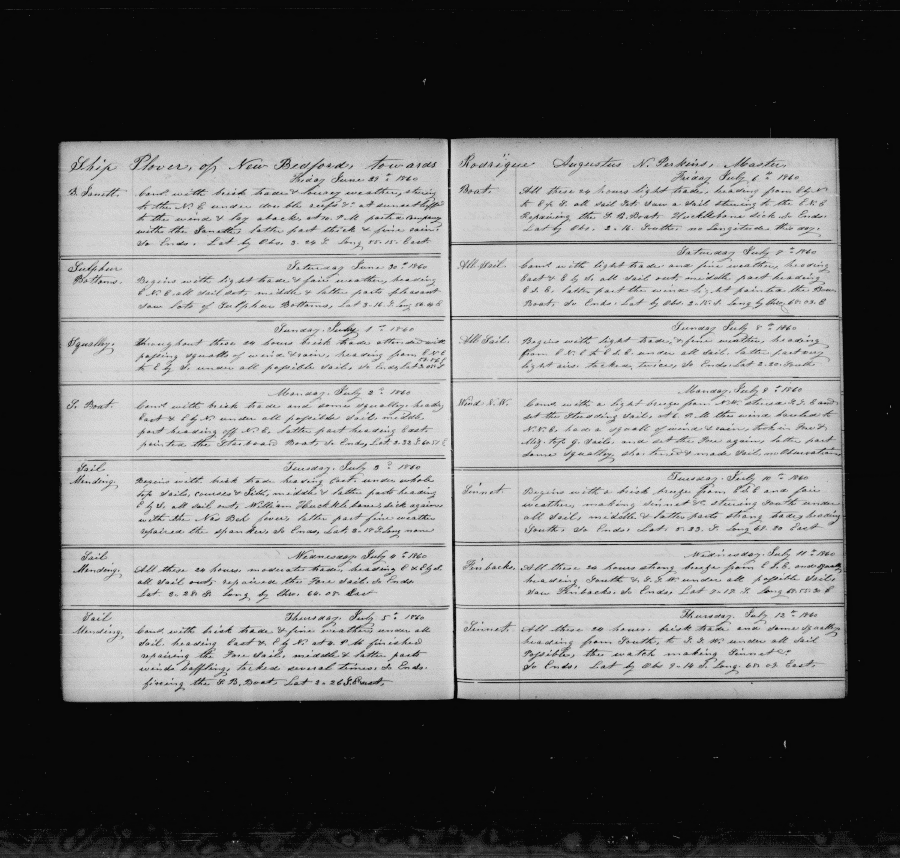 Ship Plover, of New Bedford, towards
Friday June 29th 1860
B. Janett. Comd. with brisk trade & squally weather, steering
to the N. E under double reefs &c. at sunset luffed
to the wind & lay aback, at 10. P. M parted company
with the Janett, latter part thick & fine rain
So Ends. Lat by Obs. 3. 24 S. Long 55. 15. East
Sulphur Saturday June 30th 1860
Bottoms. Begins with light trade & fair weather, heading
E. N. E. all sail set, middle & latter parts pleasant
Saw lots of Sulphur Bottoms, Lat 3. 16. S. Long
Sunday. July 1st 1860
Squally. Throughout these 24 hours brisk trade attended with
passing squalls of wind & rain, heading from E. N. E
to E by S. under all possible sail. So Ends Lat
Monday. July 2nd 1860
S. Boat. Comd. with brisk trade and some squally, heading
East & E by N. under all possible sail middle
part heading off N. E. latter part heading East.
painted the Starboard Boat. So Ends, Lat 2. 33. S
Sail Tuesday. July 3rd 1860
Mending. Begins with brisk trade heading East. under whole
top sails, courses & Jibs, middle & latter parts heading
E by S. all sail out, William Hucklebone sick again
with the fever, latter part fine weather
repaired the spanker. So Ends, Lat 2. 18 S. Long none
Sail Wednesday. July 4th 1860
Mending. All these 24 hours. moderate trade, heading E & E by S.
all sail out, repaired the Fore Sail. So Ends
Lat 2. 28. S. Long by Chro. 64. 08. East
Sail Thursday. July 5th 1860
Mending. Comd. with brisk trade & fine weather, under all
sail heading East & E by N. at 4 P. M finished
repairing the Fore Sail, middle & latter parts
winds baffling, tacked several times. So Ends.
fixing the S. B. Boat, Lat 2. 26 S. East.
Rodrique Augustus N. Perkins, Master,
Friday July 6th 1860
Boat. All these 24 hours light trade, heading from E by N
to E by S. all sail set. saw a sail steering to the E. N. E
Repairing the S. B. Boat Hucklebone sick So Ends.
Lat by Obs. 2. 16. South. no Longitude this day.
Saturday July 7th 1860
All Sail. Comd. with light trade and fine weather, heading
East & E by S. all sail out, middle part heading
E. S. E. latter part the wind light painted the Bow
Boat, So Ends. Lat by Obs. 2. 15. S. Long by Chro. 65. 03. E
Sunday July 8th 1860
All Sail. Begins with light trade, & fine weather, heading
from E. N. E to E. S. E. under all sail. latter part very
light airs. tacked twice, So Ends. Lat 2. 20. South
Monday. July 9th 1860
Wind. N. W. Comd. with a light breeze from N. W. steered S. S. E and
set the Studding Sails, at 6. P. M the wind hauled to
N. N. E. had a squall of wind & rain, took in Fore &
Miz. top G. Sails. and set the Fore again, latter part
some squally, shortened & made sail, no Observation
Tuesday. July 10th 1860
Sinnet. Begins with a brisk breeze from E S E and fair
weather, making sinnet &c. steering South under
all sail, middle & latter parts strong trade, heading
South. So Ends. Lat. 5. 23. S. Long 68. 20 East
Wednesday. July 11th 1860
Finbacks. All these 24 hours strong breeze from E. S. E. and squally
heading South & S. S. W. under all possible sail.
saw Finbacks. So Ends, Lat 7. 12. S. Long
Thursday. July 12th 1860
Sinnet. All these 24 hours. brisk trade and some squally
heading from South, to S. S. W. under all sail
Possible, the watch making Sinnet &c
So Ends, Lat by Obs 9. 14 S. Long. 68. 03. East